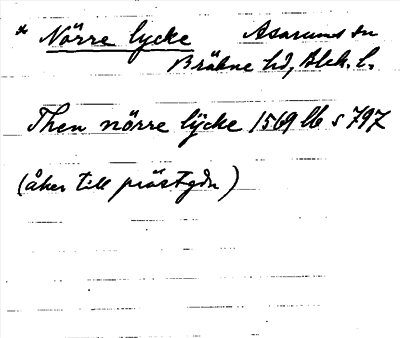 * Nörre lycke Asarums sn
Bräkne hd, Blek. l.
Then nörre lÿcke 1569 lb s 797
(åker till prästgdn)